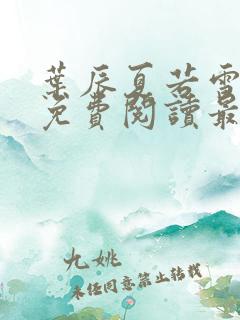 葉辰夏若雪
免費閱讀最
九姚
未经同意禁止转载